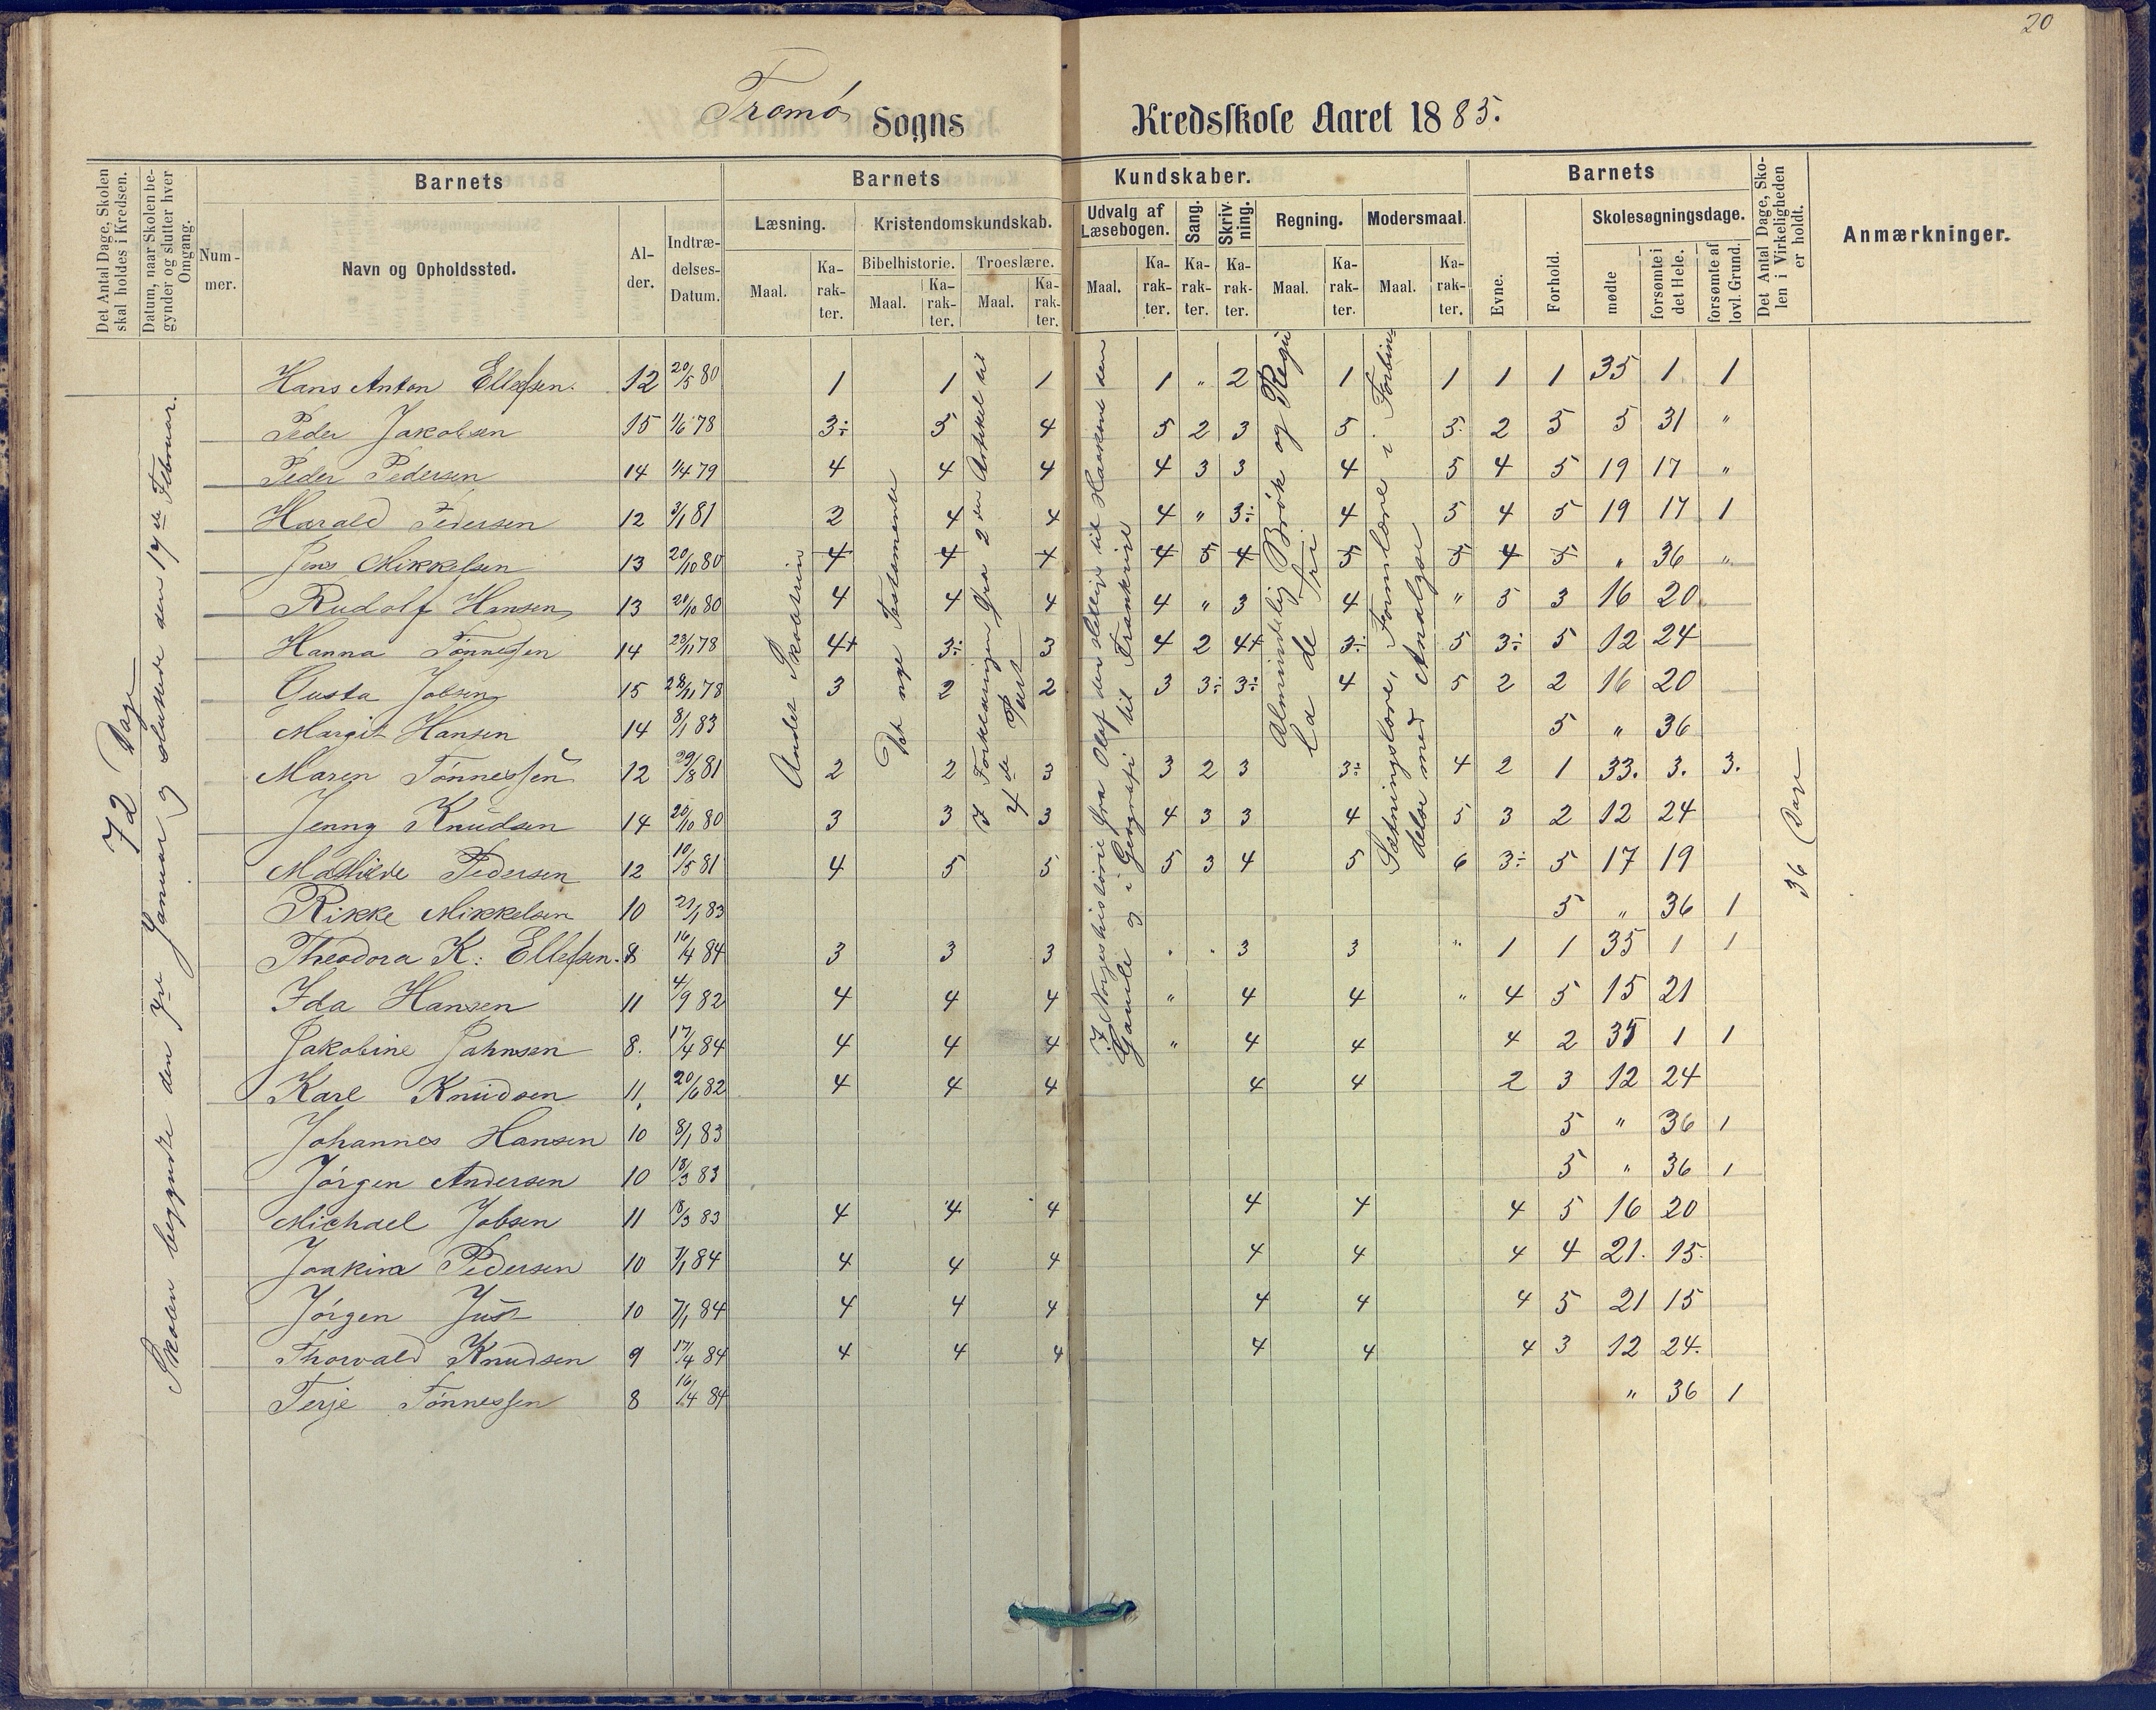 20
Tromø Sogns Kredsskole Aaret 1885.
Det Antal Dage, Skolen skal holdes i Kredsen.
Datum, naar Skolen begynder og slutter hver Omgang.
Nummer.
Barnets
Navn og Opholdssted.
Alder.
Indtrædelses-Datum.
Barnets Kundskaber.
Læsning.
Maal.
Karakter.
Kristendomskundskab.
Bibelhistorie.
Maal.
Karakter.
Troeslære.
Maal.
Karakter.
Udvalg af Læsebogen.
Maal.
Karakter.
Sang.
Karakter.
Skrivning.
Karakter.
Regning.
Maal.
Karakter.
Modersmaal.
Maal.
Karakter.
Barnets
Evne.
Forhold.
Skolesøgningsdage.
mødte
forsømte i det Hele.
forsømte af lovl. Grund.
Det Antal Dage, Skolen i Virkeligheden er holdt.
Anmærkninger.
72 Dage
Skolen begyndte den 7de Januar og sluttede den 17de Februar.
Det nye Testamente
I Forklaringen fra 2den Artikel til 4de Part
I Norgeshistorie fra Olaf den hellige til Haakon den Gamle og i Geografi til Frankrige
Almindelig Brøk og Regula de tri
Sætningslære, Formlære i Forbindelse med Analyse
36 Dage
Hans Anton Ellefsen. 12 20/5 80 1 1 1 1 " 2 1 1 1 1 35 1 1
Peder Jakobsen 15 1/6 78 3÷ 5 4 5 2 3 5 5. 2 5 5 31 "
Peder Pedersen 14 1/4 79 4 4 4 4 3 3 4 5 4 5 19 17 "
Harald Pedersen 12 3/1 81 2 4 4 4 " 3÷ 4 5 4 5 19 17 1
Jens Mikkelsen 13 20/10 80 4 4 4 4 5 4 5 5 4 5 " 36 "
Rudolf Hansen 13 20/10 80 4 4 4 4 " 3 4 " 5 3 16 20
Hanna Tønnessen 14 23/11 78 4+ 3÷ 3 4 2 4+ 3÷ 5 3÷ 5 12 24
Gusta Jobsen 15 28/11 78 3 2 2 3 3÷ 3÷ 4 5 2 2 16 20
Margit Hansen 14 8/1 83 5 " 36
Maren Tønnessen 12 29/8 81 2 2 3 3 2 3 3÷ 4 2 1 33. 3. 3.
Jenny Knudsen 14 20/10 80 3 3 3 4 3 3 4 5 3 2 12 24
Mathilde Pedersen 12 10/5 81 4 5 5 5 3 4 5 6 3÷ 5 17 19
Rikke Mikkelsen 10 21/1 83 5 " 36 1
Theodora K: Ellefsen. 8 16/4 84 3 3 3 " " 3 3 " 1 1 35 1 1
Ida Hansen 11 4/9 82 4 4 4 " 4 4 " 4 5 15 21
Jakobine Jahnsen 8. 17/4 84 4 4 4 " 4 4 4 2 35 1 1
Karl Knudsen 11. 20/6 82 4 4 4 4 4 2 3 12 24
Johannes Hansen 10 8/1 83 5 " 36 1
Jørgen Andersen 10 18/3 83 5 " 36 1
Michael Jobsen 11 18/3 83 4 4 4 4 4 4 5 16 20
Joakim Pedersen 10 7/1 84 4 4 4 4 4 4 4 21. 15.
Jørgen Just 10 7/1 84 4 4 4 4 4 4 5 21 15
Thorvald Knudsen 9 17/4 84 4 4 4 4 4 4 3 12 24.
Terje Tønnessen 8 16/4 84 " 36 1